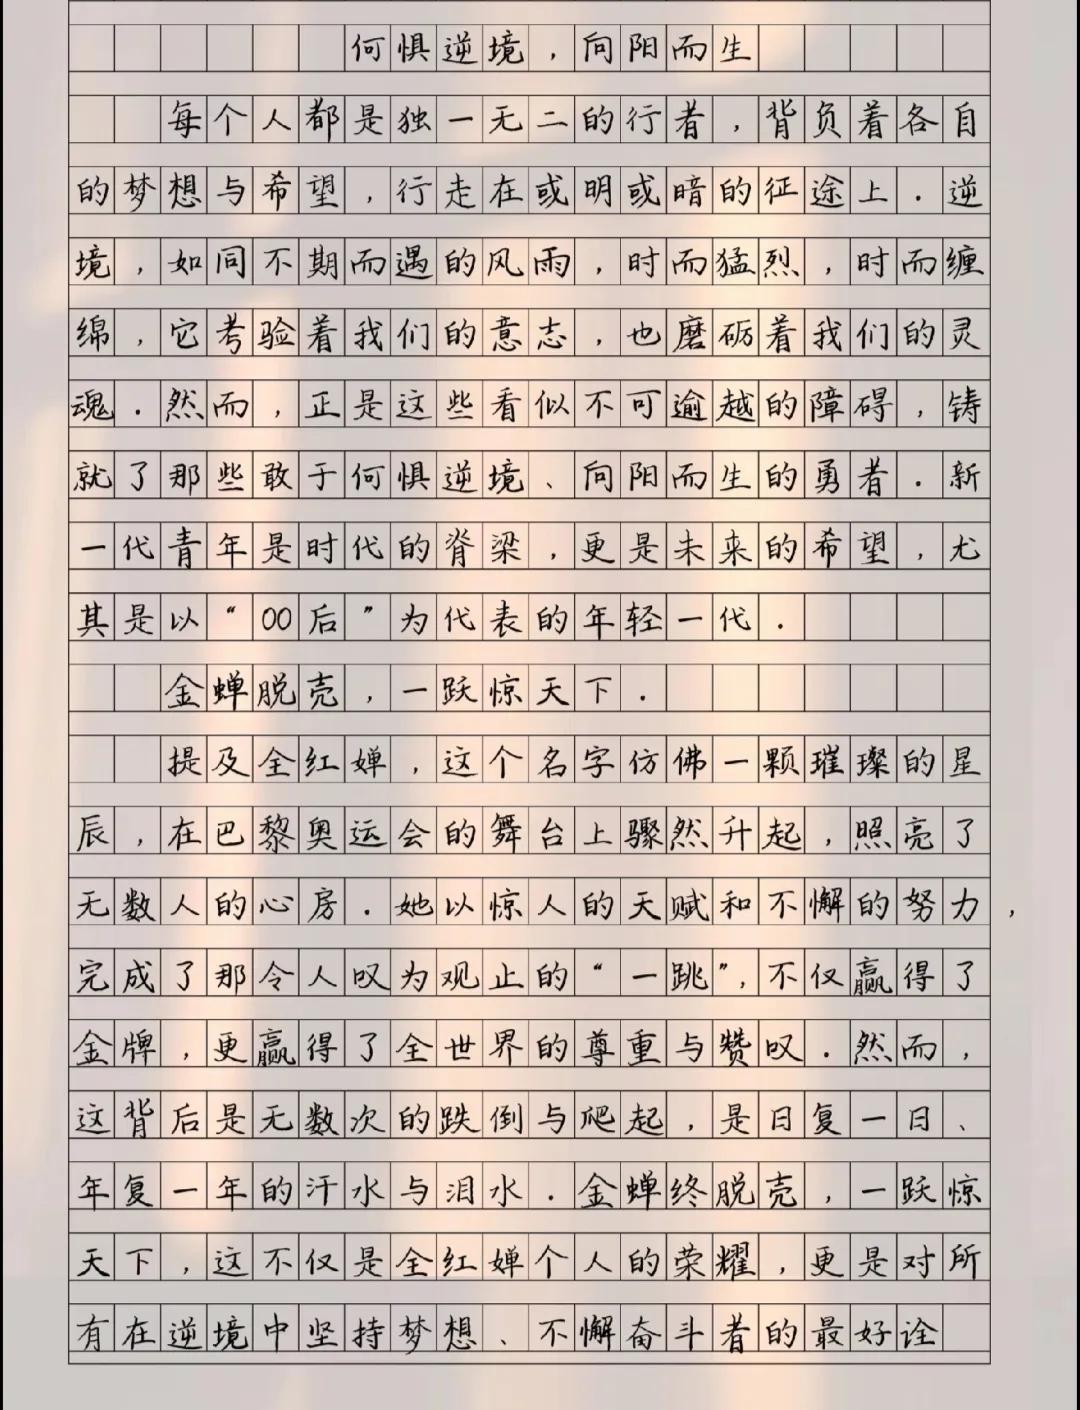 何惧逆境，向阳而生
每个人都是独一无二的行者，背负着各自
的梦想与希望，行走在或明或暗的征途上．逆
境，如同不期而遇的风雨，时而猛烈，时而缠
绵，它考验着我们的意志，也磨砺着我们的灵
魂．然而，正是这些看似不可逾越的障碍，铸
就了那些敢于何惧逆境、向阳而生的勇者．新
一代青年是时代的脊梁，更是未来的希望，尤
其是以“00后”为代表的年轻一代．
金蝉脱壳，一跃惊天下．
提及全红婵，这个名字仿佛一颗璀璨的星
辰，在巴黎奥运会的舞台上骤然升起，照亮了
无数人的心房．她以惊人的天赋和不懈的努力，
完成了那令人叹为观止的“一跳”，不仅赢得了
金牌，更赢得了全世界的尊重与赞叹．然而，
这背后是无数次的跌倒与爬起，是日复一日、
年复一年的汗水与泪水．金蝉终脱壳，一跃惊
天下，这不仅是全红婵个人的荣耀，更是对所
有在逆境中坚持梦想、不懈奋斗者的最好诠